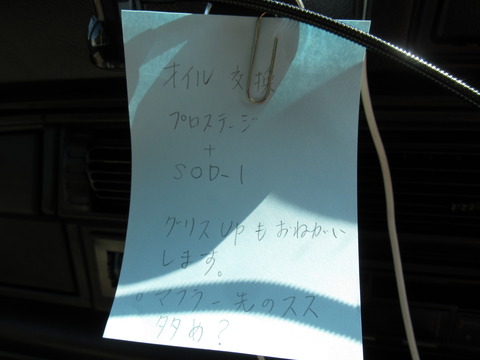 オイル 交換
プロステージ
+
SOD-1
グリスUPもおねがい
します。
○マフラー先のスス
タタめ?